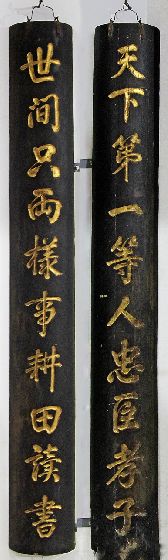 天下第一等人忠臣孝子
世间只両樣事耕田讀書